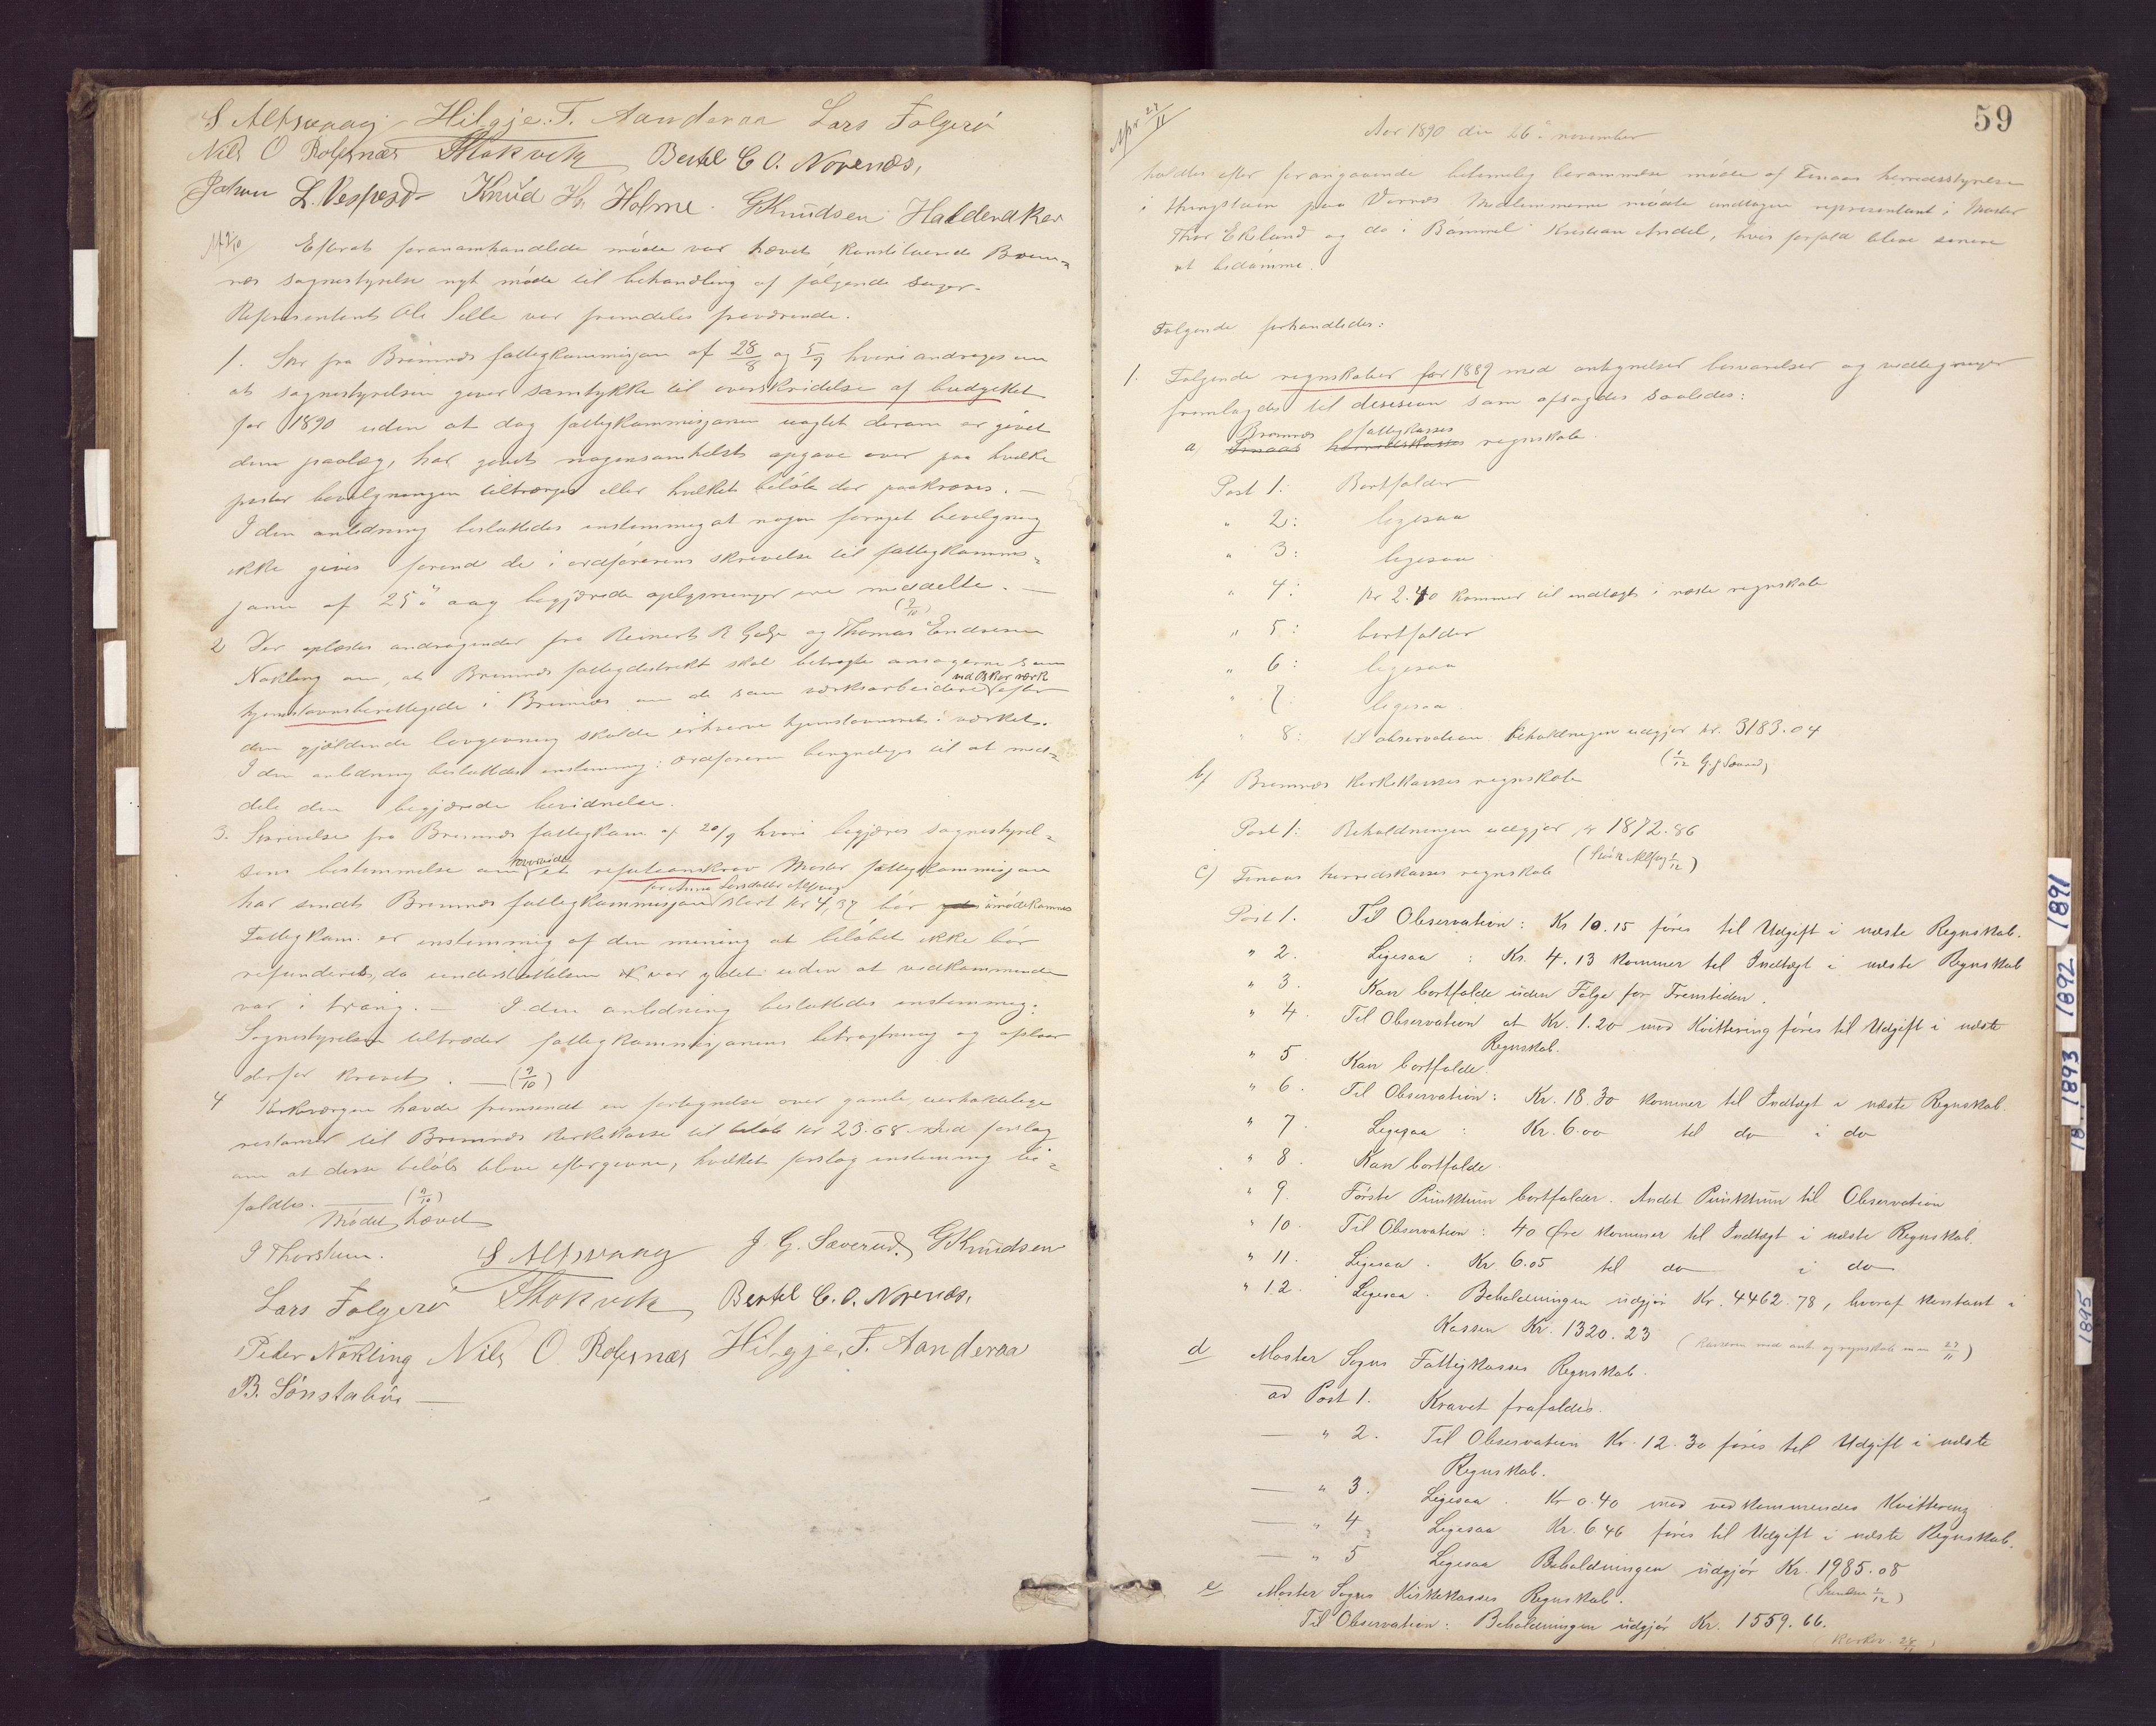 S Alfsvaag Hilgje. F. Aanderaa Lars Folgerö
Nils O Rolfsnæs Stokvik Bertel C. O. Norenæs,
Johan L. Vespesd Knud Hs Holme. G Knudsen Haldenaker
Efterat forannamhandlede möde var hævet konstituerede Brem-
næs sognestyrelse nyt möde til behandling af fölgende sager.
Repræsentant Ole Selle var fremdeles fraværende.
1. Skr fra Bremnæs fattigkommisjon af 28/8 og 5/9 hvori andrages om
at sognestyrelsen giver samtykke til overskridelse af budgettet
for 1890 uden at dog fattigkommisjonen uagtet derom er givet
dem paalæg, har givet nogensomhelst opgave over paa hvilke
poster bevilgningen tiltrænges eller hvilket belöb der paakræves. —
I den anledning besluttedes enstemmig at nogen fornyet bevilgning
ikke gives forend de i ordförerens skrivelse til fattigkommis-
jonen af 25de aug begjærede oplysninger ere meddelte. —
(9/10)
2 Der oplæstes andragender fra Reinert R Gaße og Thomas Endresen
Nökling om, at Bremnæs fattigdistrikt skal betragte ansøgerne som
ved Oskar værk
hjemstavnsberettigede i Bremnæs om de som værksarbeidere efter
den gjældende lovgivning skulde erhverve hjemstavnsret i værket.
I den anledning besluttedes enstemmig: ordföreren bemyndiges til at med-
dele den begjærede bevidnelse.
3. Skrivelse fra Bremnæs fattigkom. af 20/9 hvori begjæres sognestyrel-
sens bestemmelse om hvorvidt et refusionskrav Moster fattigkommisjon
for Anna Larsdatter Alfsvag
har sendt Bremnæs fattigkommisjon stort kr 4,37 bör imödekommes
Fattigkom. er enstemmig af den mening at belöbet ikke bör
refunderes, da understöttelsen var ydet uden at vedkommende
var i trang. — I den anledning besluttedes enstemmig:
Sognestyrelsen tiltræder fattigkommisjonens betragtning og afslaar
derfor kravet. — (9/10)
4 Kirkeværgen havde fremsendt en fortegnelse over gamle uerholdelige
restancer til Bremnæs kirkekasse til belöb kr 23.68 med forslag
om at disse belöb bleve eftergivne, hvilket forslag enstemmig bi-
faldtes. — (9/10)
Mödet hævet
J Thorsteen. S Alfsvaag J. G. Sæverud. G Knudsen
Lars Folgerö Stokvik Bertel C. O. Norenæs,
Peder Nökling Nils O. Rolfsnæs Hilgje. F. Aanderaa
B. Sönstabö —
59
Aar 1890 den 26de november
holdtes efter forangaaende betimelig berammelse möde af Finaas herredsstyrelse
i thingstuen paa Vornæs Medlemmerne mödte undtagen repræsentant i Moster
Thor Ekeland og do i Bömmel Kristian Andal, hvis forfald bleve senere
at bedömme.
Fölgende forhandledes:
1. Fölgende regnskaber for 1889 med antegnelser besvarelser og vedtegninger
fremlagdes til desision som afsagdes saaledes:
Bremnæs fattigkasses
a) Finaas herredskasses regnskab.
Post 1: Bortfalder
" 2: ligesaa
" 3: ligesaa
" 4: Kr 2.40 kommer til indtægt i næste regnskab
" 5: bortfalder
" 6: ligesaa
" 7: ligesaa
" 8: til observation. Beholdningen udgjör kr. 3183.04
b) Bremnæs kirkekasses regnskab
Post 1: Beholdningen udgjør kr 1872.86
c) Finaas herredskasses regnskab
Post 1. Til Observation: Kr 10.15 föres til Udgift i næste Regnskab.
" 2. Ligesaa: Kr. 4.13 kommer til Indtægt i næste Regnskab
" 3. Kan bortfalde uden Fölge for Fremtiden.
" 4. Til Observation at Kr. 1.20 mod Kvittering föres til Udgift i næste
Regnskab.
" 5. Kan bortfalde.
" 6. Til Observation: Kr. 18.30 kommer til Indtægt i næste Regnskab.
" 7. Ligesaa: Kr. 6.00 til do i do
" 8. Kan bortfalde.
" 9. Förste Punktum bortfalder. Andet Punktum til Observation
" 10. Til Observation: 40 Øre kommer til Indtægt i næste Regnskab.
" 11. Ligesaa. Kr 6.05 til do i do
" 12. Ligesaa. Beholdningen udgjör Kr. 4462.78, hvoraf kontant i
Kassen Kr. 1320.23
d Moster Sogns Fattigkasses Regnskab.
ad Post 1. Kravet frafaldes.
— " 2. Til Observation Kr. 12.30 föres til Udgift i næste
Regnskab.
— " 3. Ligesaa. Kr 0.40 mod vedkommendes Kvittering
— " 4. Ligesaa Kr. 6.46 föres til Udgift i næste Regnskab.
— " 5 Ligesaa Beholdningen udgjör Kr. 1985.08
e Moster Sogns Kirkekasses Regnskab.
Til Observation: Beholdningen udgjör Kr. 1559.66.
1891
1892
1893
18
1895